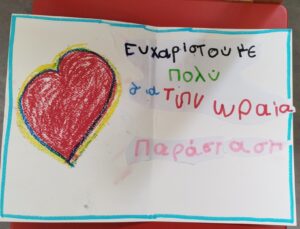 Ευχαριστουμε
πολύ
για Την ωραία
Παράσταση